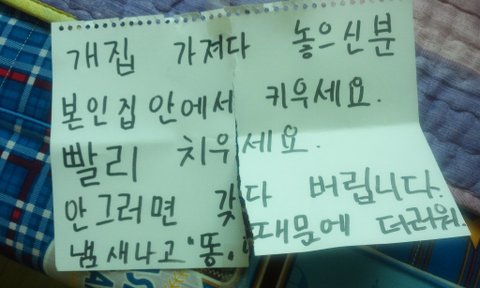 개집 가져다 놓으신분
본인집 안에서 키우세요.
빨리 치우세요.
안그러면 갖다 버립니다.
냄새나고 똥. 때문에 더러워.